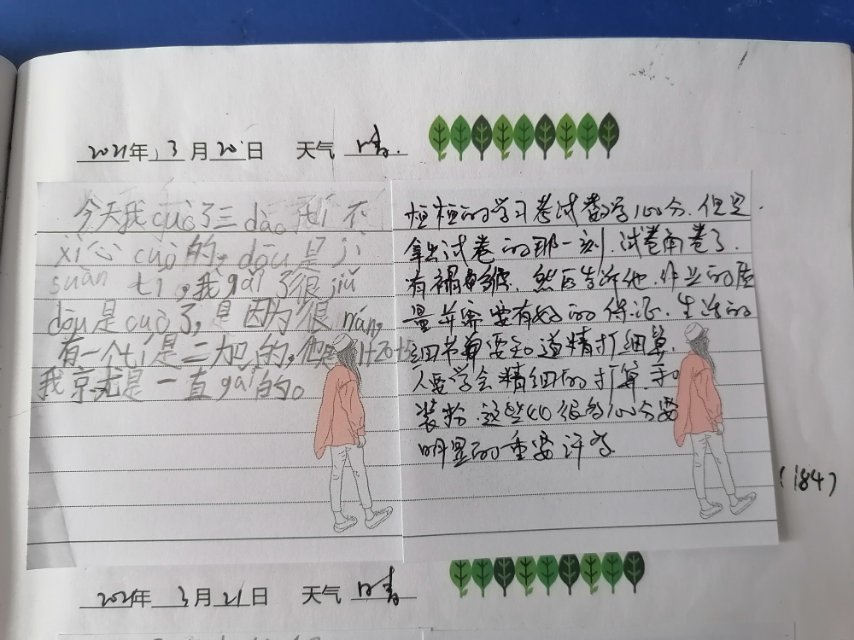 2021年 3月20日 天气 晴.
今天我cuò了三dào tí 不
xì心cuò的，dōu是jì
suàn tí，我gǎi了很jiǔ
dōu是cuò了，是因为很nán，
有一个tí是二加的，
我就是一直gǎi的。
恒恒的学习考试数学100分.但是.
拿出试卷的那一刻.试卷
有 然后告诉他.作业的质
量并需要有好的保证.生活的
细节 要知道精打细算.
人要学会精细的打算
装扮.这些 100分要
明显的重要许多
(184)
2021年 3月21日 天气 晴